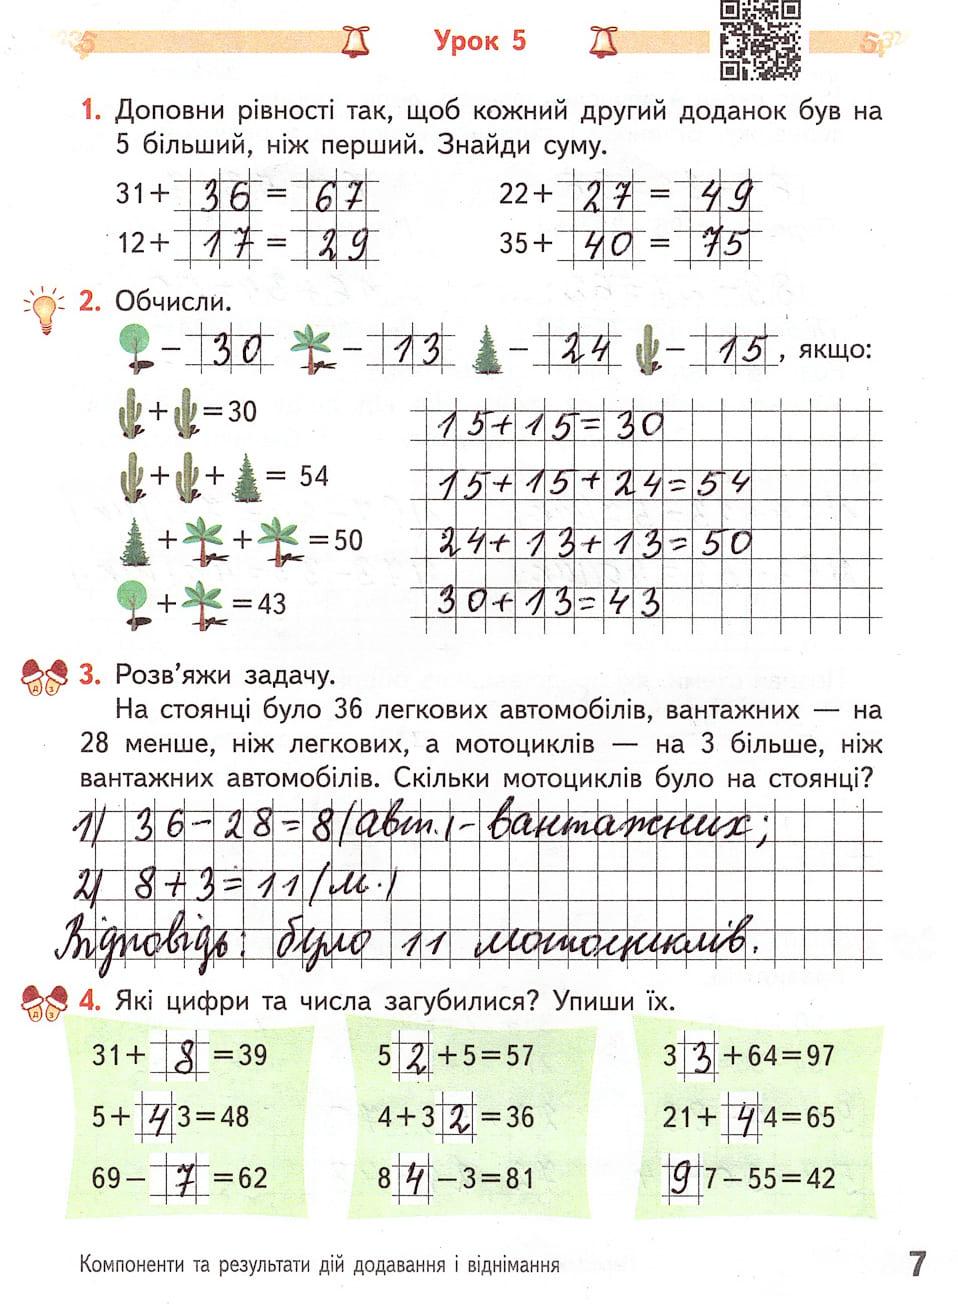 Урок 5
1. Доповни рівності так, щоб кожний другий доданок був на
5 більший, ніж перший. Знайди суму.
31+ 36 = 67 22+ 27 = 49
12+ 17 = 29 35+ 40 = 75
2. Обчисли.
– 30 – 13 – 24 – 15, якщо:
+ =30 15+15=30
+ + = 54 15+15+24=54
+ + =50 24+13+13=50
+ =43 30+13=43
3. Розв'яжи задачу.
На стоянці було 36 легкових автомобілів, вантажних — на
28 менше, ніж легкових, а мотоциклів — на 3 більше, ніж
вантажних автомобілів. Скільки мотоциклів було на стоянці?
1) 36-28=8(авт.)-вантажних;
2) 8+3=11(м.)
Відповідь: було 11 мотоциклів.
4. Які цифри та числа загубилися? Упиши їх.
31+ 8 =39 52+5=57 33+64=97
5+43=48 4+32=36 21+44=65
69– 7 =62 84–3=81 97–55=42
Компоненти та результати дій додавання і віднімання 7